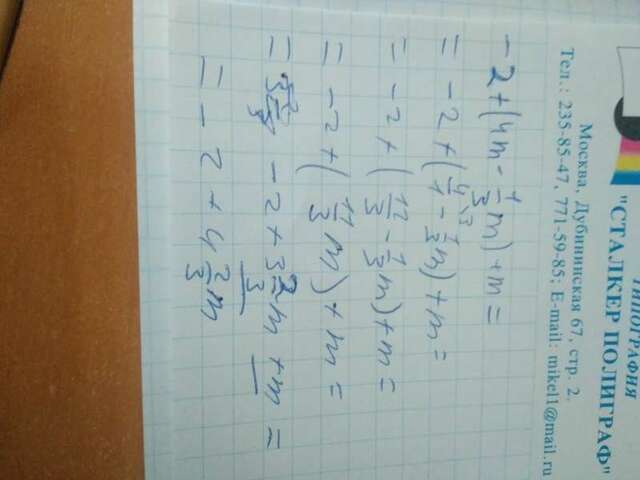 ТИПОГРАФИЯ
"СТАЛКЕР ПОЛИГРАФ"
Москва, Дубининская 67, стр. 2.
Тел.: 235-85-47, 771-59-85; E-mail: mikel1@mail.ru
-2+(4m-1/3m)+m=
=-2+(4/1\3-1/3m)+m=
=-2+(12/3-1/3m)+m=
=-2+(11/3m)+m=
= -2+3 2/3m+m=
=-2+4 2/3m